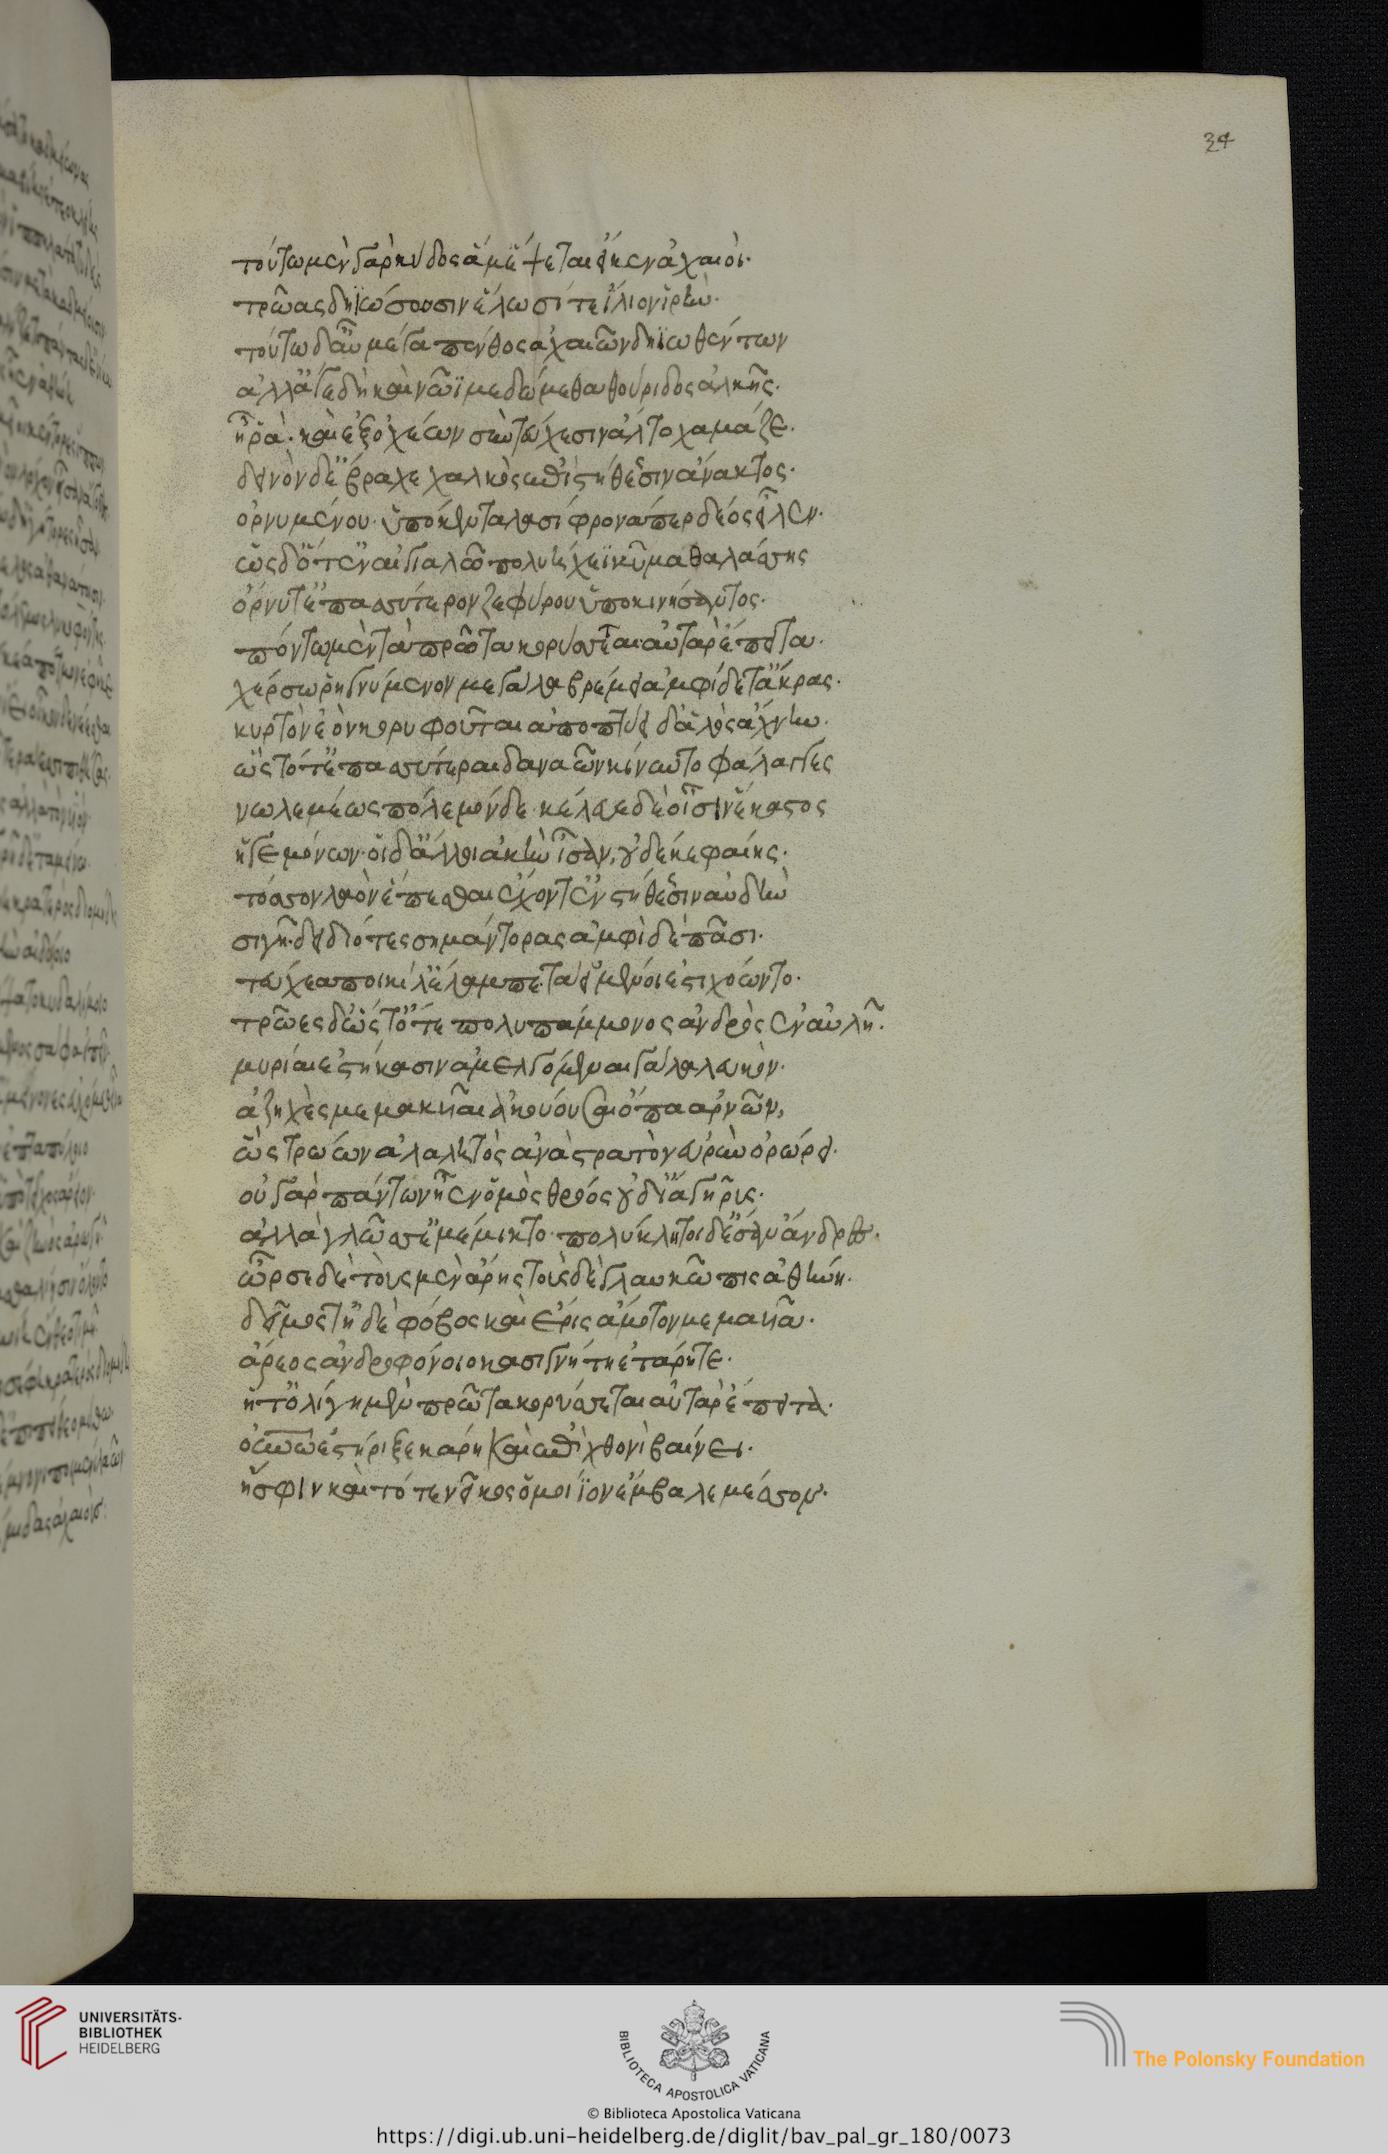 34
τούτω μὲν γὰρ κύδος ἅμ' ἕψεται εἴ κεν ἀχαιοὶ·
τρῶας δηϊώσουσιν ἕλωσί τε ἴλιον ἱρὴν·
τούτω δ' αὖ μέγα πένθος ἀχαιῶν δηϊωθέντων
ἀλλ' ἄγε δὴ καὶ νῶϊ μεδώμεθα θούριδος ἀλκῆς·
ἦ ῥὰ· καὶ ἐξ ὀχέων σὺν τεύχεσιν ἄλτο χαμάζε·
δεινὸν δ' ἔβραχε χαλκὸς ἐπὶ στήθεσσιν ἄνακτος·
ὀρνυμένου· ὑπό κεν ταλασίφρονά περ δέος εἷλεν·
ὡς δ' ὅτ' ἐν αἰγιαλῶ πολυηχέϊ κῦμα θαλάσσης
ὄρνυτ' ἐπασσύτερον ζεφύρου ὑποκινήσαντος·
πόντω μὲν τὰ πρῶτα κορύσσεται· αὐτὰρ ἔπειτα·
χέρσω ῥηγνύμενον μεγάλα βρέμει ἀμφὶ δέ τ' ἄκρας·
κυρτὸν ἐὸν κορυφοῦται ἀποπτύει δ' ἁλὸς ἄχνην·
ὣς τότ' ἐπασσύτεραι δαναῶν κίνυντο φάλαγγες
νωλεμέως πόλεμόνδε· κέλευε δὲ οἷσιν ἕκαστος
ἡγεμόνων· οἱ δ' ἄλλοι ἀκὴν ἴσαν, οὐδέ κε φαίης·
τόσσον λαὸν ἕπεσθαι ἔχοντ' ἐν στήθεσσιν αὐδὴν
σιγῆ· δειδιότες σημάντορας ἀμφὶ δὲ πᾶσι·
τεύχεα ποικίλ' ἔλαμπε· τὰ εἱμένοι ἐστιχόωντο·
τρῶες δ' ὥς τ' ὄϊες πολυπάμμονος ἀνδρὸς ἐν αὐλῆ·
μυρίαι ἑστήκασιν ἀμελγόμεναι γάλα λευκὸν·
ἀζηχὲς μεμακυῖαι ἀκούουσαι ὄπα ἀρνῶν,
ὣς τρώων ἀλαλητὸς ἀνὰ στρατὸν εὐρὺν ὀρώρει·
οὐ γὰρ πάντων ἦεν ὁμὸς θρόος οὐδ' ἴα γῆρυς·
ἀλλὰ γλῶσσ' ἐμέμικτο· πολύκλητοι δ' ἔσαν ἄνδρες·
ὦρσε δὲ τοὺς μὲν ἄρης τοὺς δὲ γλαυκῶπις ἀθήνη·
δεῖμός τ' ἠδὲ φόβος καὶ ἔρις ἄμοτον μεμακῖα·
ἄρεος ἀνδροφόνοιο κασιγνήτη ἑτάρη τε·
ἥ τ' ὀλίγη μὲν πρῶτα κορύσσεται αὐτὰρ ἔπειτα·
οὐρανῷ ἐστήριξε κάρη καὶ ἐπὶ χθονὶ βαίνει·
ἥ σφιν καὶ τότε νεῖκος ὁμοίϊον ἔμβαλε μέσσω·
UNIVERSITÄTS-
BIBLIOTHEK
HEIDELBERG
BIBLIOTECA APOSTOLICA VATICANA
The Polonsky Foundation
© Biblioteca Apostolica Vaticana
https://digi.ub.uni-heidelberg.de/diglit/bav_pal_gr_180/0073